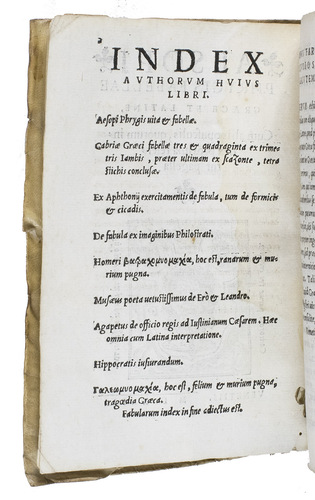 INDEX
AVTHORVM HVIVS
LIBRI.
Aesopi Phrygis uita & fabellæ.
Gabriæ Græci fabellæ tres & quadraginta ex trime
tris Iambis, præter ultimam ex scazonte, tetra
stichis conclusæ.
Ex Aphthonij exercitamentis de fabula, tum de formicis
& cicadis.
De fabula ex imaginibus Philostrati.
Homeri βατραχομυομαχία, hoc est, ranarum & mu
rium pugna.
Musæus poeta uetustissimus de Ero & Leandro.
Agapetus de officio regis ad Iustinianum Cæsarem. Hæc
omnia cum Latina interpretatione.
Hippocratis iusiurandum.
Γαλεωμυομαχία, hoc est, felium & murium pugna,
tragœdia Græca.
Fabularum index in fine adiectus est.